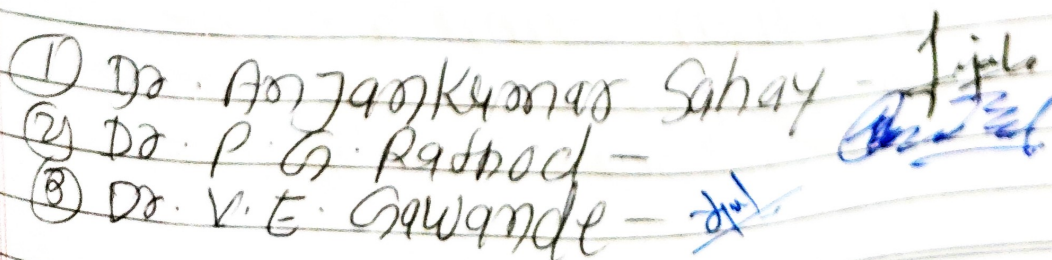 ① Dr. Anjankumar Sahay -
② Dr. P. G. Rathod -
③ Dr. V. E. Gawande -